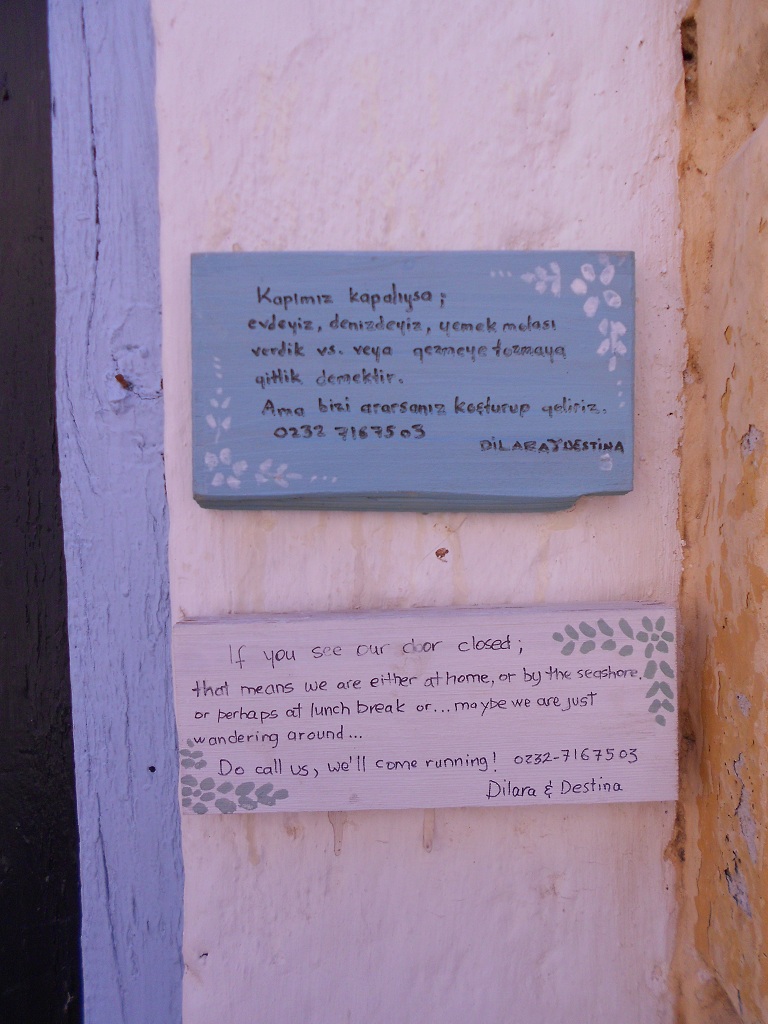 Kapımız kapalıysa;
evdeyiz, denizdeyiz, yemek molası
verdik vs. veya gezmeye tozmaya
gittik demektir.
Ama bizi ararsanız koşturup geliriz.
0232 7167503
DİLARAYDESTİNA
If you see our door closed;
that means we are either at home, or by the seashore,
or perhaps at lunch break or... maybe we are just
wandering around...
Do call us, we'll come running! 0232-7167503
Dilara & Destina